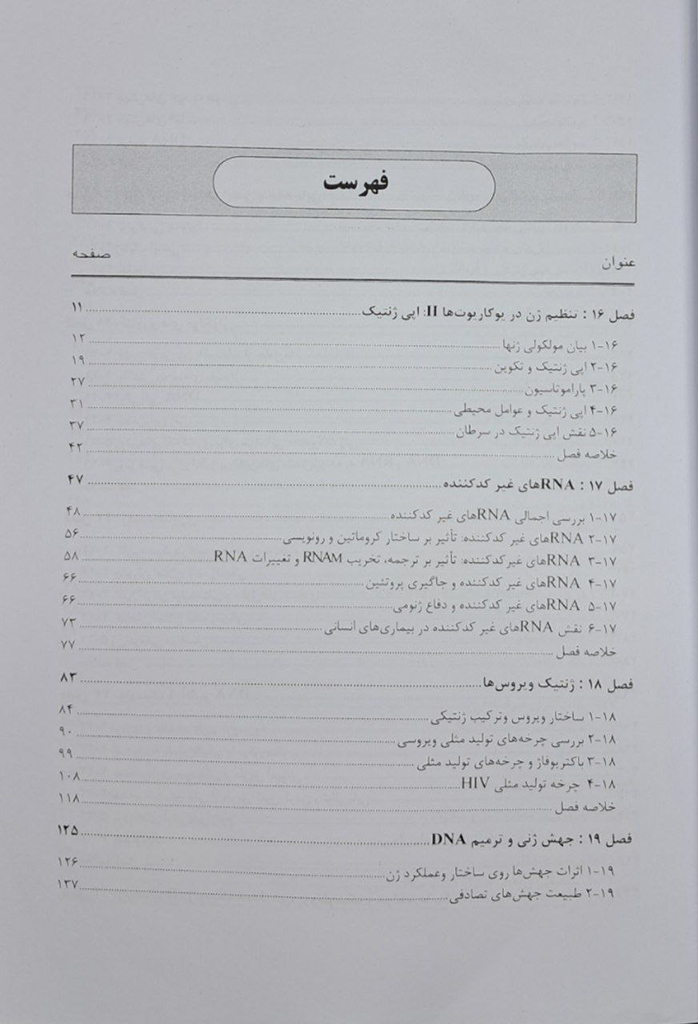 فهرست
عنوان صفحه
فصل ۱۶ : تنظیم ژن در یوکاریوت‌ها II: اپی ژنتیک ۱۱
۱-۱۶ بیان مولکولی ژنها ۱۲
۲-۱۶ اپی ژنتیک و تکوین ۱۹
۳-۱۶ پاراموتاسیون ۲۷
۴-۱۶ اپی ژنتیک و عوامل محیطی ۳۱
۵-۱۶ نقش اپی ژنتیک در سرطان ۳۷
خلاصه فصل ۴۲
فصل ۱۷ : RNAهای غیر کدکننده ۴۷
۱-۱۷ بررسی اجمالی RNAهای غیر کدکننده ۴۸
۲-۱۷ RNAهای غیر کدکننده: تأثیر بر ساختار کروماتین و رونویسی ۵۶
۳-۱۷ RNAهای غیرکدکننده: تأثیر بر ترجمه، تخریب RNAM و تغییرات RNA ۵۸
۴-۱۷ RNAهای غیر کدکننده و جاگیری پروتئین ۶۶
۵-۱۷ RNAهای غیر کدکننده و دفاع ژنومی ۶۶
۶-۱۷ نقش RNAهای غیر کدکننده در بیماری‌های انسانی ۷۳
خلاصه فصل ۷۷
فصل ۱۸ : ژنتیک ویروس‌ها ۸۳
۱-۱۸ ساختار ویروس وترکیب ژنتیکی ۸۴
۲-۱۸ بررسی چرخه‌های تولید مثلی ویروسی ۹۰
۳-۱۸ باکتریوفاژ و چرخه‌های تولید مثلی ۹۹
۴-۱۸ چرخه تولید مثلی HIV ۱۰۸
خلاصه فصل ۱۱۸
فصل ۱۹ : جهش ژنی و ترمیم DNA ۱۲۵
۱-۱۹ اثرات جهش‌ها روی ساختار وعملکرد ژن ۱۲۶
۲-۱۹ طبیعت جهش‌های تصادفی ۱۳۷